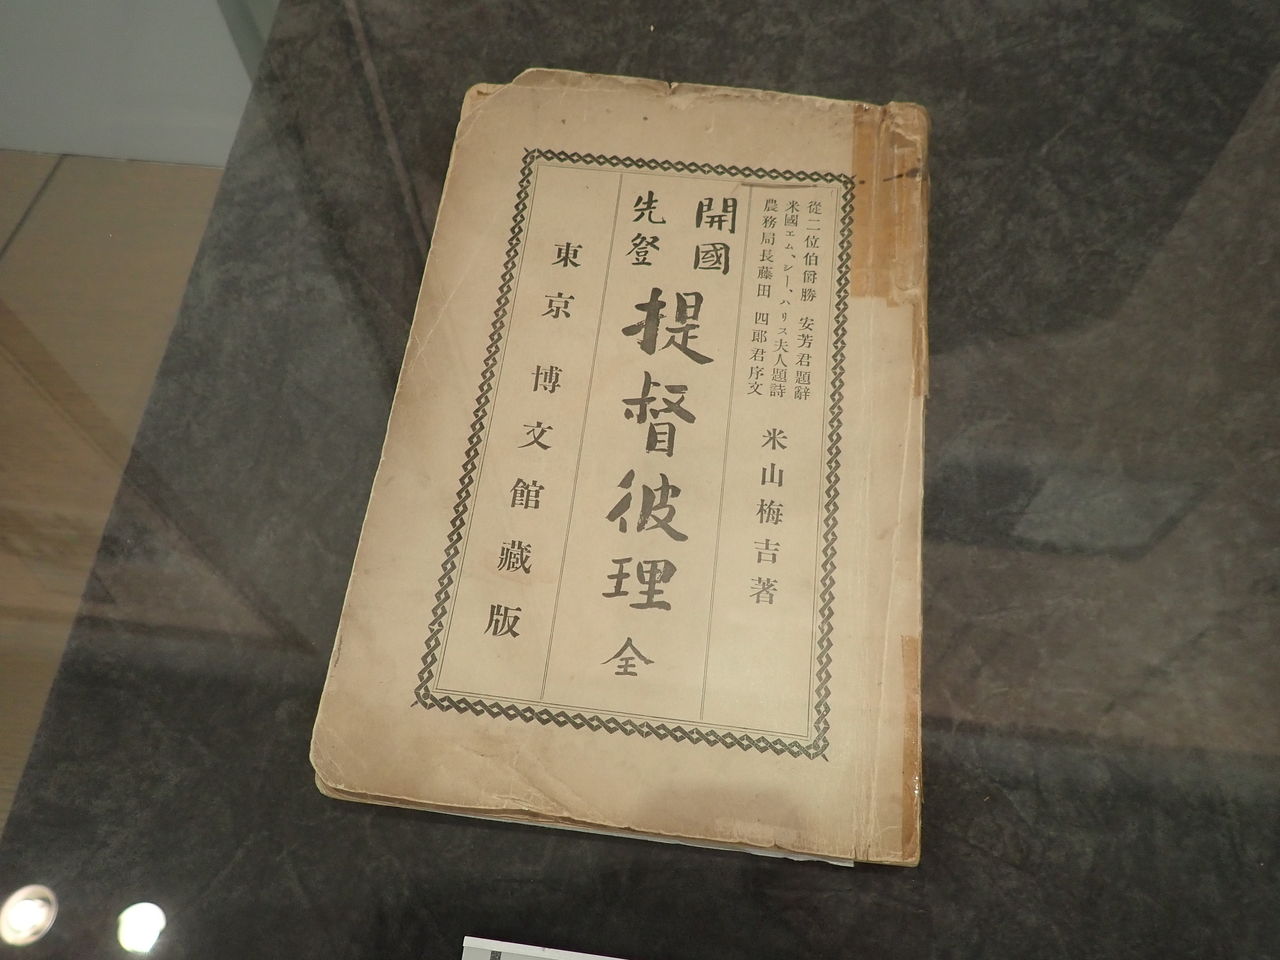 從二位伯爵勝 安芳君題辭
米國エム、シー、ハリス夫人題詩
農務局長藤田 四郎君序文
米山梅吉著
開國
先登
提督彼理 全
東京 博文館藏版